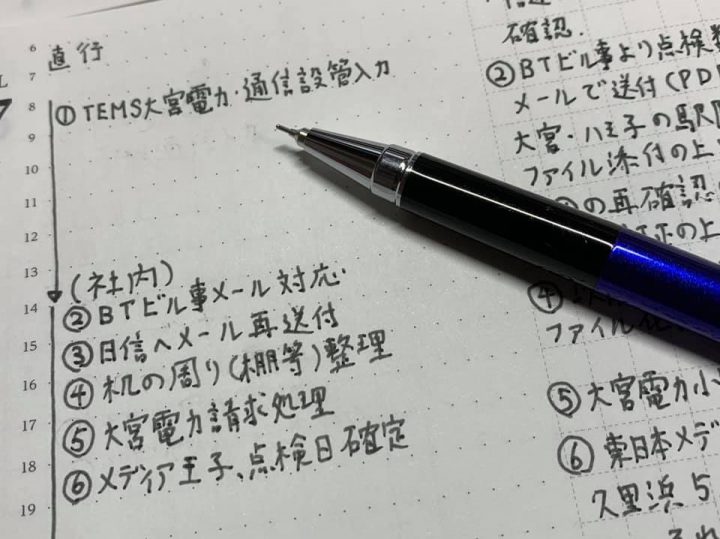 L
7
6
直行
7
8
① TEMS大宮電力・通信設管入力
9
10
11
12
13
(社内)
14
② BTビル事メール対応
15
③ 日信へメール再送付
16
④ 机の周り(棚等)整理
17
⑤ 大宮電力請求処理
18
⑥ メディア王子、点検日確定
19
確認.
② BTビル事より点検
メールで送付(PD
大宮・八王子の駅
ファイル添付の上
の再確認
の上
④
ファイル
⑤ 大宮電力小
⑥ 東日本メデ
久里浜5